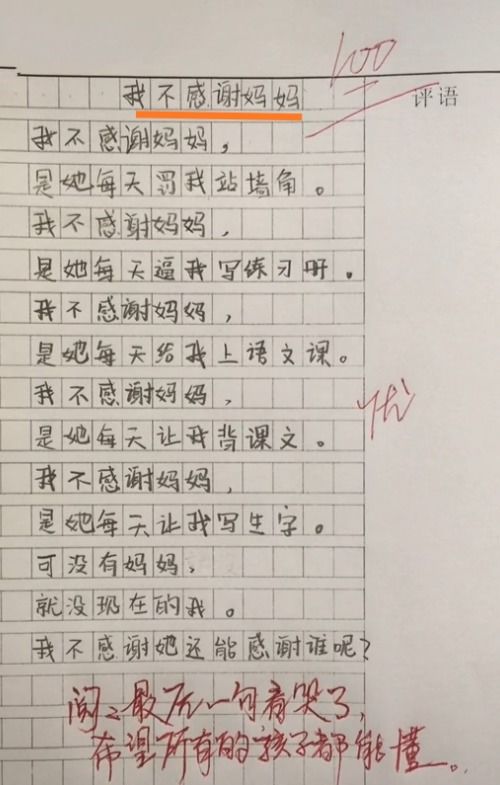 100
评语
我不感谢妈妈
我不感谢妈妈，
是她每天罚我站墙角。
我不感谢妈妈，
是她每天逼我写练习册。
我不感谢妈妈，
是她每天给我上语文课。
我不感谢妈妈，
是她每天让我背课文。
优
我不感谢妈妈，
是她每天让我写生字。
可没有妈妈，
就没现在的我。
我不感谢她还能感谢谁呢？
阅：最后一句看哭了，
希望所有的孩子都能懂。